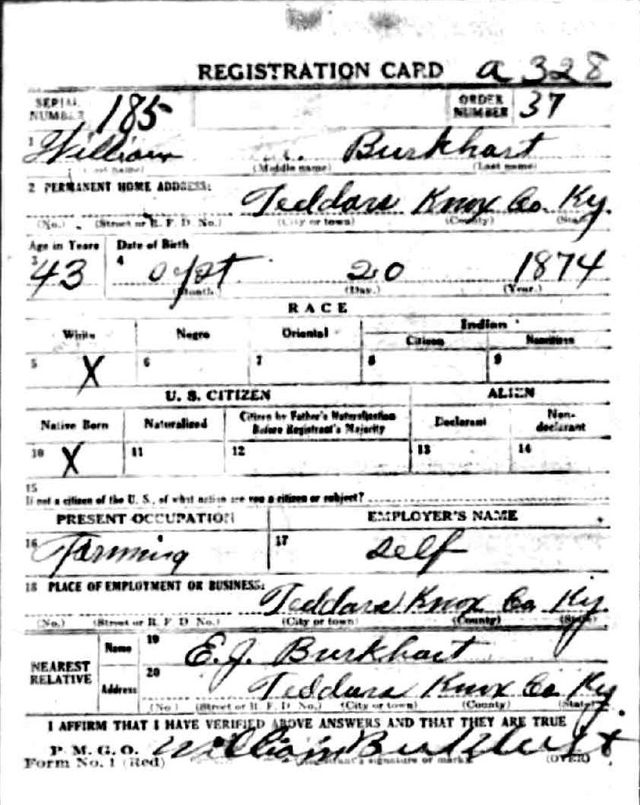 REGISTRATION CARD a 328
SERIAL NUMBER 185 ORDER NUMBER 37
1 William Burkhart
(Middle name) (Last name)
2 PERMANENT HOME ADDRESS: Teddars Knox Co. Ky.
(No.) (Street or R. F. D. No.) (City or town) (County) (State)
Age in Years Date of Birth
3 43 4 20 1874
(Month.) (Day.) (Year.)
RACE
White Negro Oriental Indian
Citizen Noncitizen
5 X 6 7 8 9
U. S. CITIZEN ALIEN
Native Born Naturalized Citizen by Father's Naturalization Before Registrant's Majority Declarant Non-declarant
10 X 11 12 13 14
15
If not a citizen of the U. S., of what nation are you a citizen or subject?
PRESENT OCCUPATION EMPLOYER'S NAME
16 Farming 17 self
18 PLACE OF EMPLOYMENT OR BUSINESS: Teddars Knox Co Ky.
(No.) (Street or R. F. D. No.) (City or town) (County) (State)
NEAREST RELATIVE Name 19 E. J. Burkhart
Address 20 Teddars Knox Co Ky.
(No.) (Street or R. F. D. No.) (City or town) (County) (State)
I AFFIRM THAT I HAVE VERIFIED ABOVE ANSWERS AND THAT THEY ARE TRUE
P. M. G. O. William Burkhart
Form No. 1 (Red) (Registrant's signature or mark) (OVER)